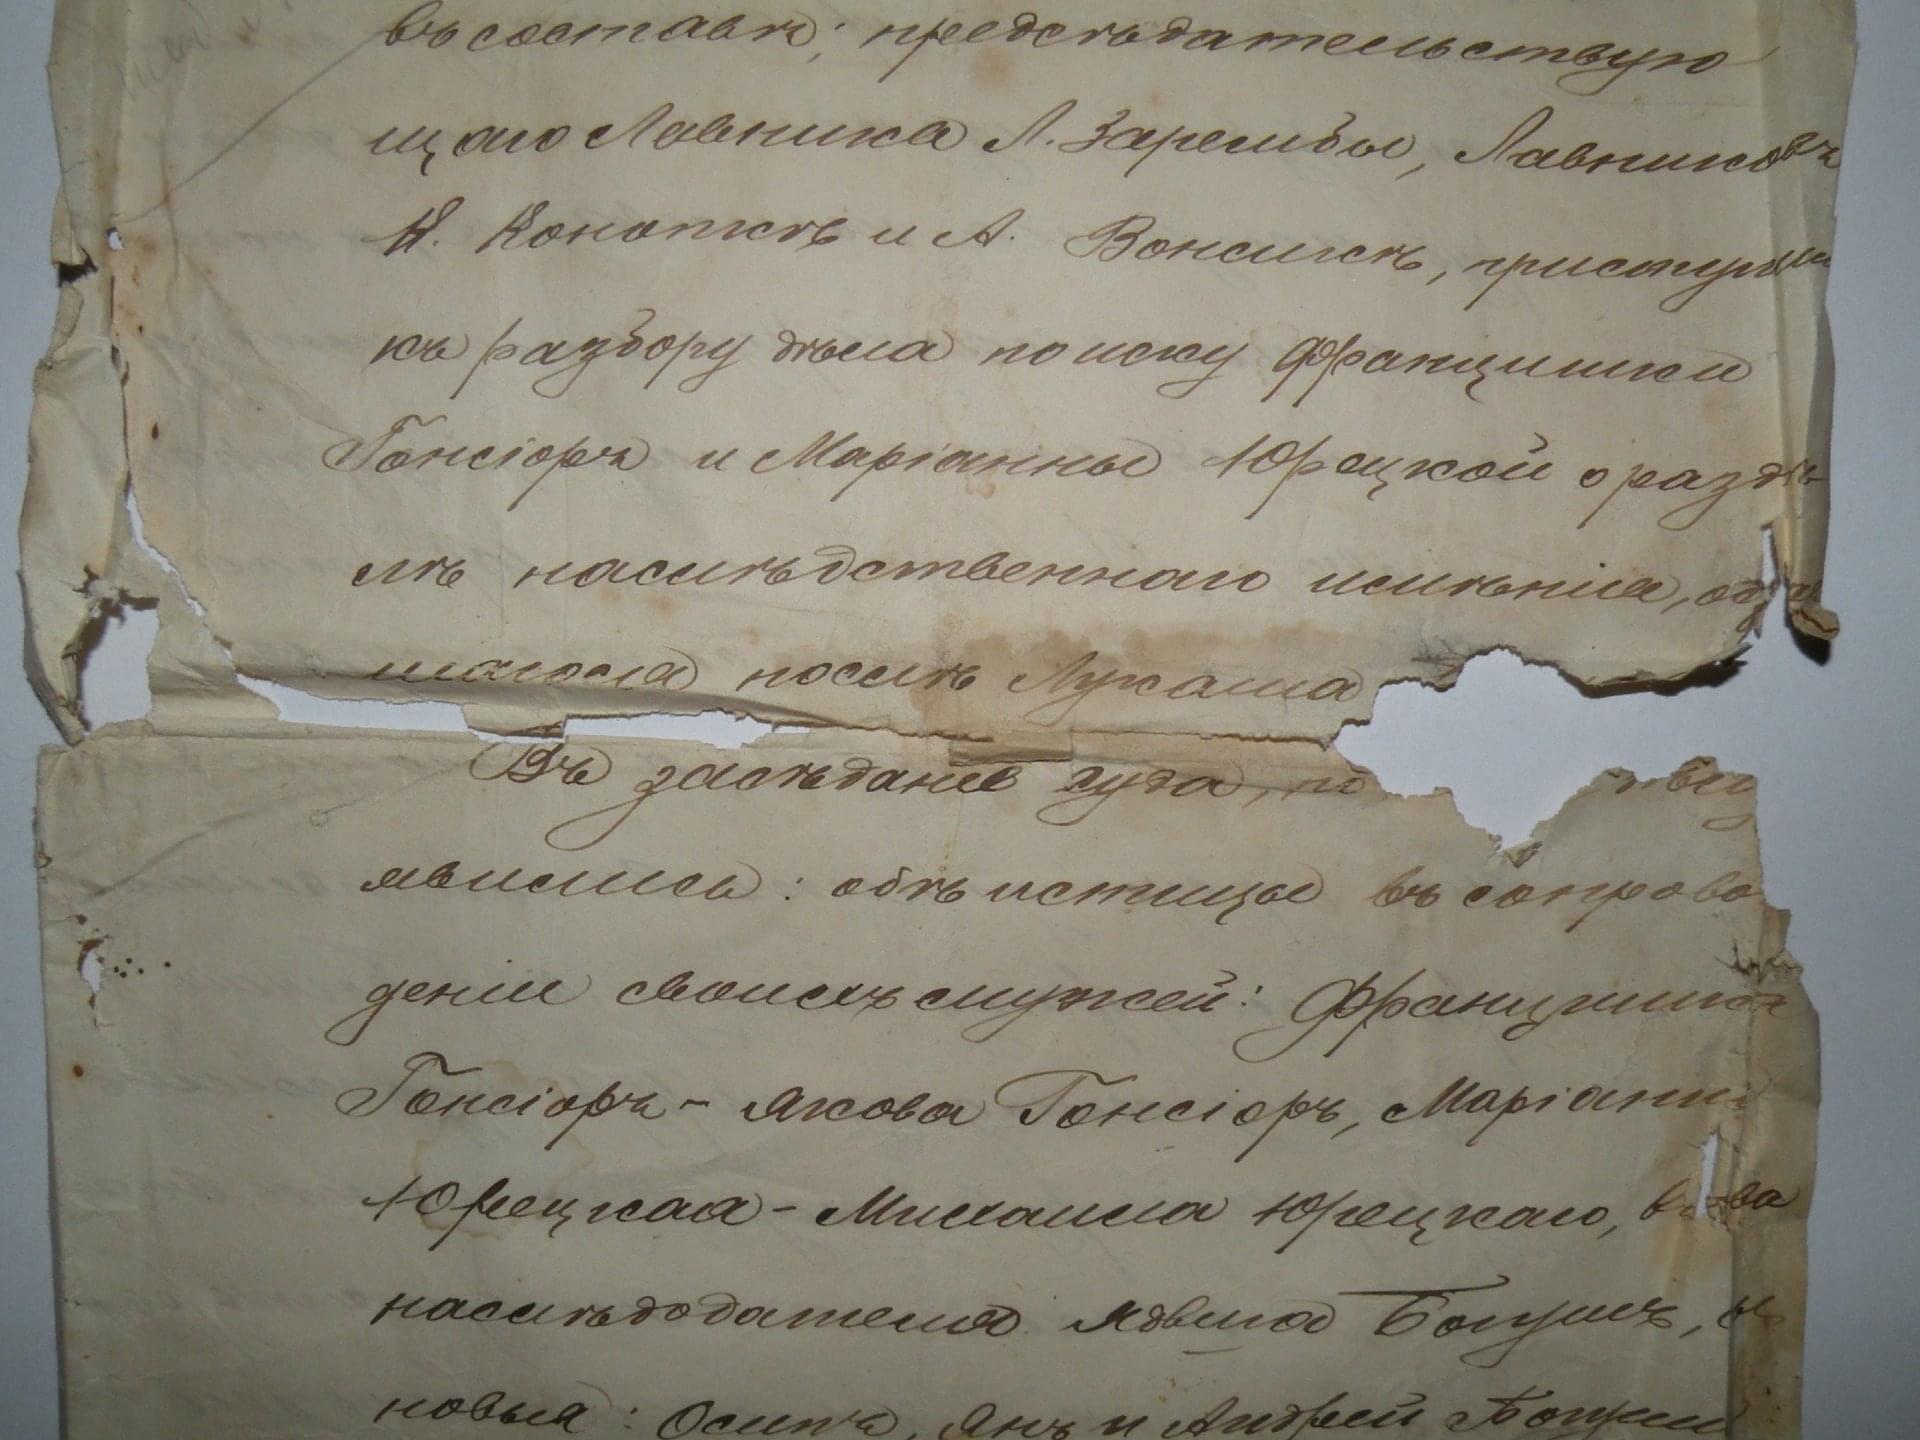 въ составѣ; предсѣдательствую
щаго Лавника Л. Зарембы, Лавниковъ
Конопкѣ и А. Вонсикъ, приступи
къ разбору дѣла по иску Францишки
Гонсіоръ и Маріанны Юрецкой о раздѣ-
лѣ наслѣдственнаго имѣнія,
шагося послѣ Лукаша
Въ засѣданіе суда,
явились: обѣ истицы въ сопрово
деніи своихъ мужей: Францишка
Гонсіоръ - Якова Гонсіоръ, Маріанна
Юрецкая - Михаила Юрецкаго,
наслѣдодателя Ядвига Боцинъ,
новья: Осипъ, Янъ и Андрей